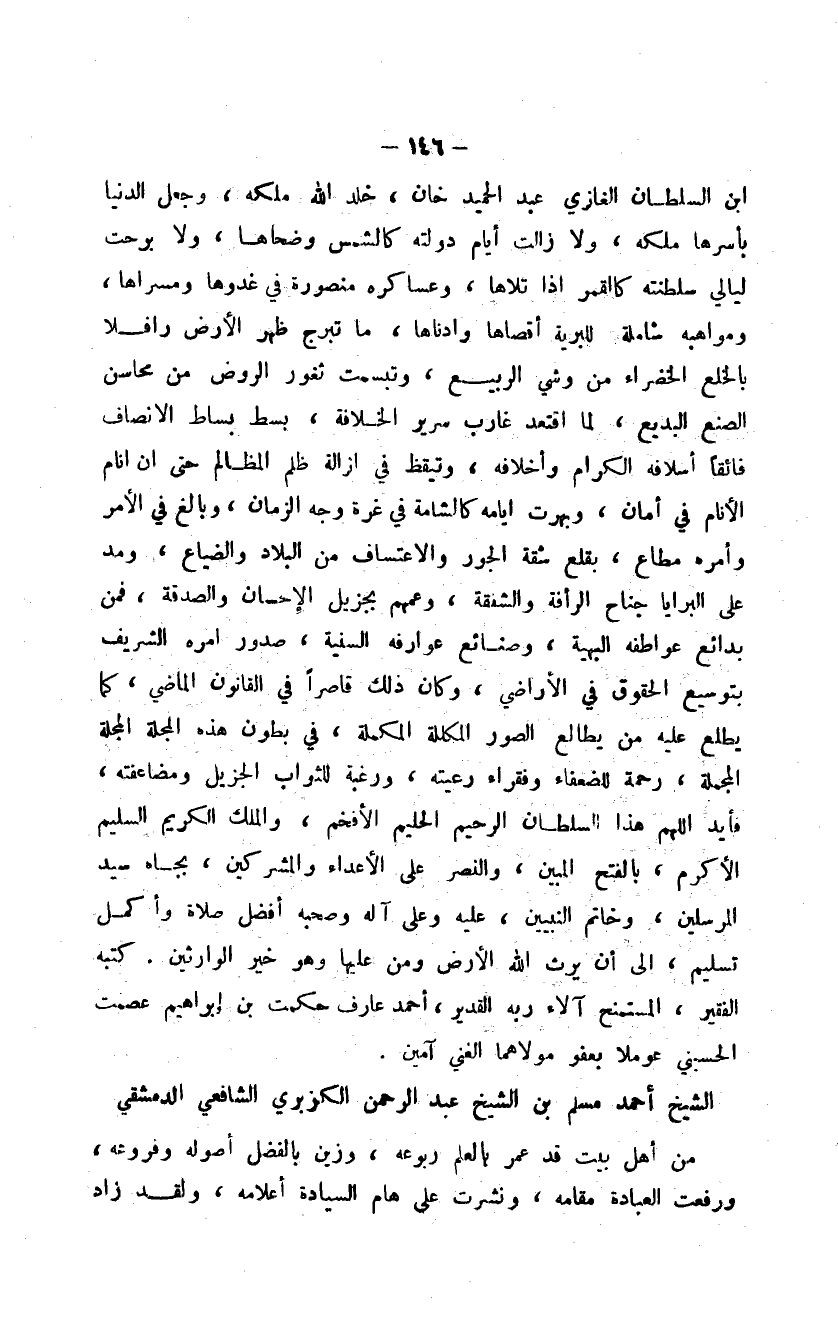 – ١٤٦ –
ابن السلطان الغازي عبد الحميد خان ، خلد الله ملكه ، وجعل الدنيا
بأسرها ملكه ، ولا زالت أيام دولته كالشمس وضحاها ، ولا برحت
ليالي سلطنته كالقمر اذا تلاها ، وعساكره منصورة في غدوها ومسراها ،
ومواهبه شاملة للبرية أقصاها وادناها ، ما تبرج ظهر الأرض رافلا
بالخلع الخضراء من وشي الربيع ، وتبسمت ثغور الروض من محاسن
الصنع البديع ، لما اقتعد غارب سرير الخلافة ، بسط بساط الانصاف
فائقاً أسلافه الكرام وأخلافه ، وتيقظ في ازالة ظلم المظالم حتى ان انام
الأنام في أمان ، وبهرت ايامه كالشامة في غرة وجه الزمان ، وبالغ في الأمر
وأمره مطاع ، بقلع شقة الجور والاعتساف من البلاد والضياع ، ومد
على البرايا جناح الرأفة والشفقة ، وعمهم بجزيل الإحسان والصدقة ، فمن
بدائع عواطفه البهية ، وصنائع عوارفه السنية ، صدور امره الشريف
بتوسيع الحقوق في الأراضي ، وكان ذلك قاصراً في القانون الماضي ، كما
يطلع عليه من يطالع الصور المكللة المكملة ، في بطون هذه المجلة المجلة
المجملة ، رحمة للضعفاء وفقراء رعيته ، ورغبة للثواب الجزيل ومضاعفته ،
فأيد اللهم هذا السلطان الرحيم الحليم الأفخم ، والملك الكريم السليم
الأكرم ، بالفتح المبين ، والنصر على الأعداء والمشركين ، بجاه سيد
المرسلين ، وخاتم النبيين ، عليه وعلى آله وصحبه أفضل صلاة وأكمل
تسليم ، الى أن يرث الله الأرض ومن عليها وهو خير الوارثين . كتبه
الفقير ، المستمنح آلاء ربه القدير ، أحمد عارف حكمت بن إبراهيم عصمت
الحسيني عوملا بعفو مولاهما الغني آمين .
الشيخ أحمد مسلم بن الشيخ عبد الرحمن الكزبري الشافعي الدمشقي
من أهل بيت قد عمر بالعلم ربوعه ، وزين بالفضل أصوله وفروعه ،
ورفعت العبادة مقامه ، ونشرت على هام السيادة أعلامه ، ولقد زاد